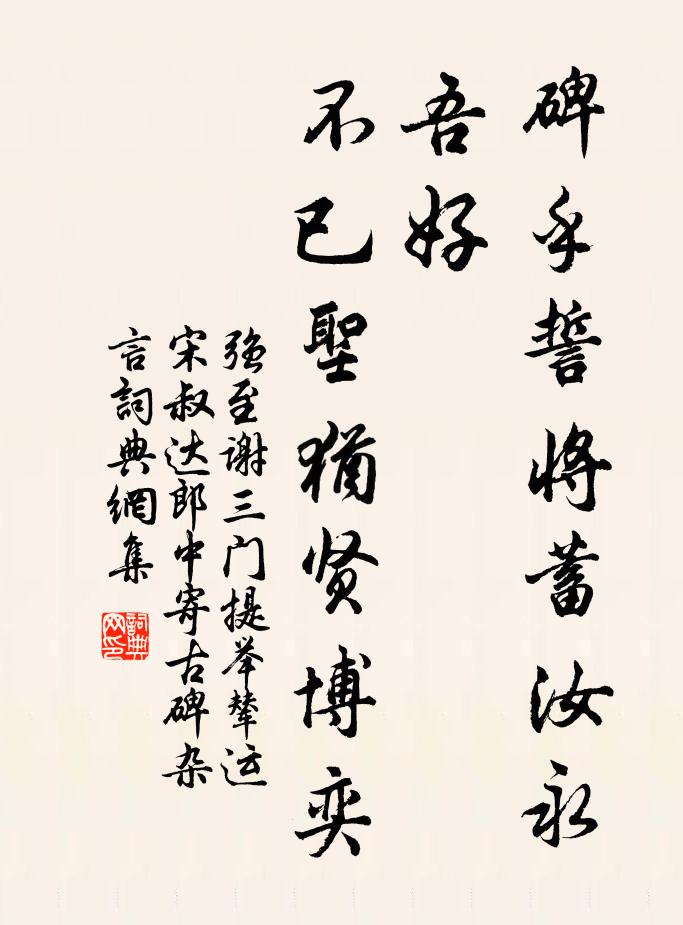 碑乎誓將蓄汝永
吾好
不已聖猶贤博奕
强至谢三门提举辇运
宋叔达郎中寄古碑杂
言詞典網集
詞典网印